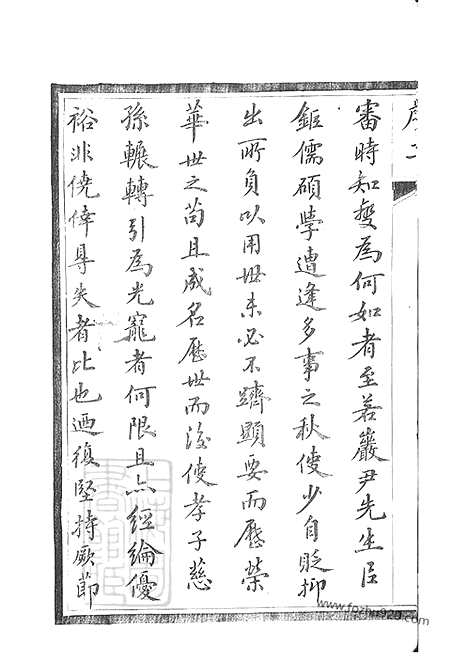 審時知變為何如者至若巖尹先生臣
鉅儒碩學遭逢多事之秋使少自貶抑
出所負以用世未必不躋顯要而歷榮
華世之苟且成名歷世而後使孝子慈
孫輾轉引為光寵者何限且亦經綸優
裕非僥倖尋矢者比也迺復堅持厥節
www.fozhu920.com